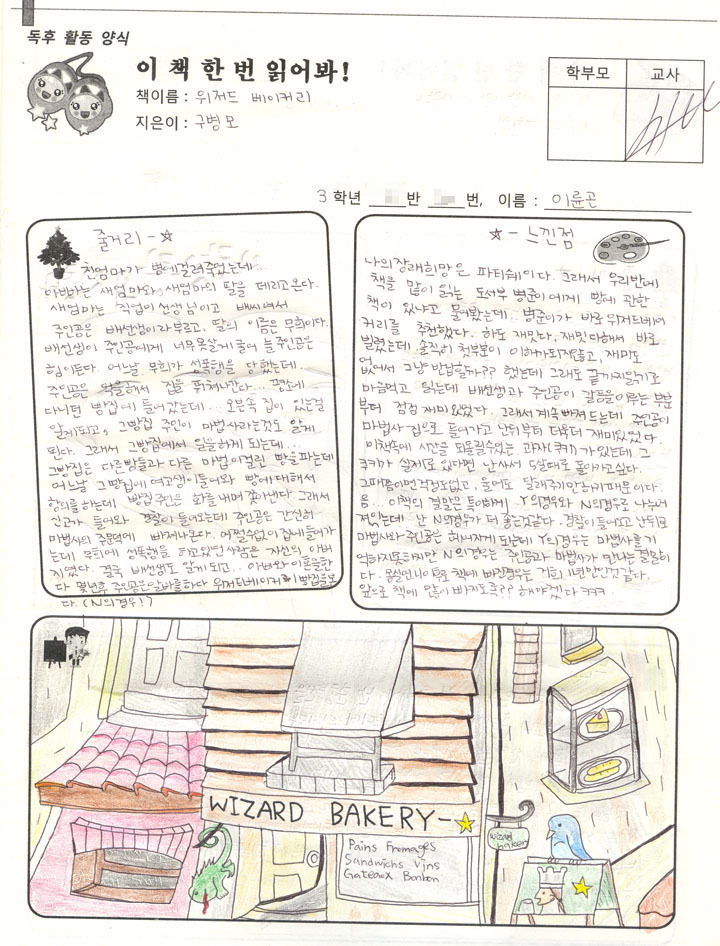 독후 활동 양식
이 책 한 번 읽어봐!
책이름 : 위저드 베이커리
지은이 : 구병모
학부모 교사
3 학년 반 번, 이름 : 이윤곤
줄거리 - ☆
친엄마가 병에걸려죽었는데...
아빠는 새엄마와, 새엄마의 딸을 데리고온다.
새엄마는 직업이 선생님이고 배씨여서
주인공은 배선생이라부르고, 딸의 이름은 무희이다.
배선생이 주인공에게 너무못살게굴어 늘 주인공은
힘이든다. 어느날 무희가 성폭행을 당했는데...
주인공은 집을 뛰쳐나간다... 평소에
다니던 빵집에 들어갔는데... 오븐속 집이 있는걸
알게되고, 그빵집 주인이 마법사라는것도 알게
된다. 그래서 그빵집에서 일을하게 되는데...
그빵집은 다른빵들과 다른 마법이걸린 빵을 파는데
어느날 그빵집에 여고생이들어와 빵에대해서
항의를하는데 빵집주인은 화를 내며 쫓아낸다. 그래서
신고가 들어와 경찰이 들어오는데 주인공은 간신히
마법사의 주문덕에 빠져나온다. 어쩔수없이집에들어가
는데 무희에 성폭행을 하고있던사람은 자신의 아버
지였다. 결국 배선생도 알게되고.. 아빠와이혼을한
다. 몇년후 주인공은알바를하다 위저드베이커리 빵집을보
다. (N의경우!)
☆ - 느낀점
나의장래희망은 파티쉐이다. 그래서 우리반에
책을 많이 읽는 도서부 병준이에게 빵에 관한
책이 있냐고 물어봤는데.. 병준이가 바로위저드베이
커리를 추천했다. 하도 재밌다, 재밌다해서 바로
빌렸는데 솔직히 첫부분이 이해가되지않고, 재미도
없어서 그냥 반납할까?? 했는데 그래도 끝까지읽기로
마음먹고 읽는데 배선생과 주인공이 갈등을이루는 부분
부터 점점 재미있었다. 그래서계속빠져드는데 주인공이
마법사 집으로 들어가고 난뒤부터 더욱더 재미있었다.
이책속에 시간을 되돌릴수있는, 과자(쿠키)가있는데 그
쿠키가 실제로 있다면 난사서 5살때로 돌아가고싶다.
그때쯤이면걱정도없고, 울어도 달래주지만하기때문이다.
음... 이책의 결말은 특이하게 Y의경우와 N의경우로 나누어
져있는데 난 N의경우가 더 좋은것같다. 경찰이들어오고난뒤
마법사와주인공은 헤어지게 되는데 Y의경우는 마법사를기
억하지못하지만 N의경우는 주인공과 마법사가 만나는결말이
다. 이정도로 책에 빠진경우는 거의 1년만인것같다.
앞으로 책에 많이 빠지도록?? 해야겠다 ㅋㅋㅋ.
WIZARD BAKERY-☆
Pains Fromages
Sandwichs Vins
Gateaux Bonbon
wizard
bakery